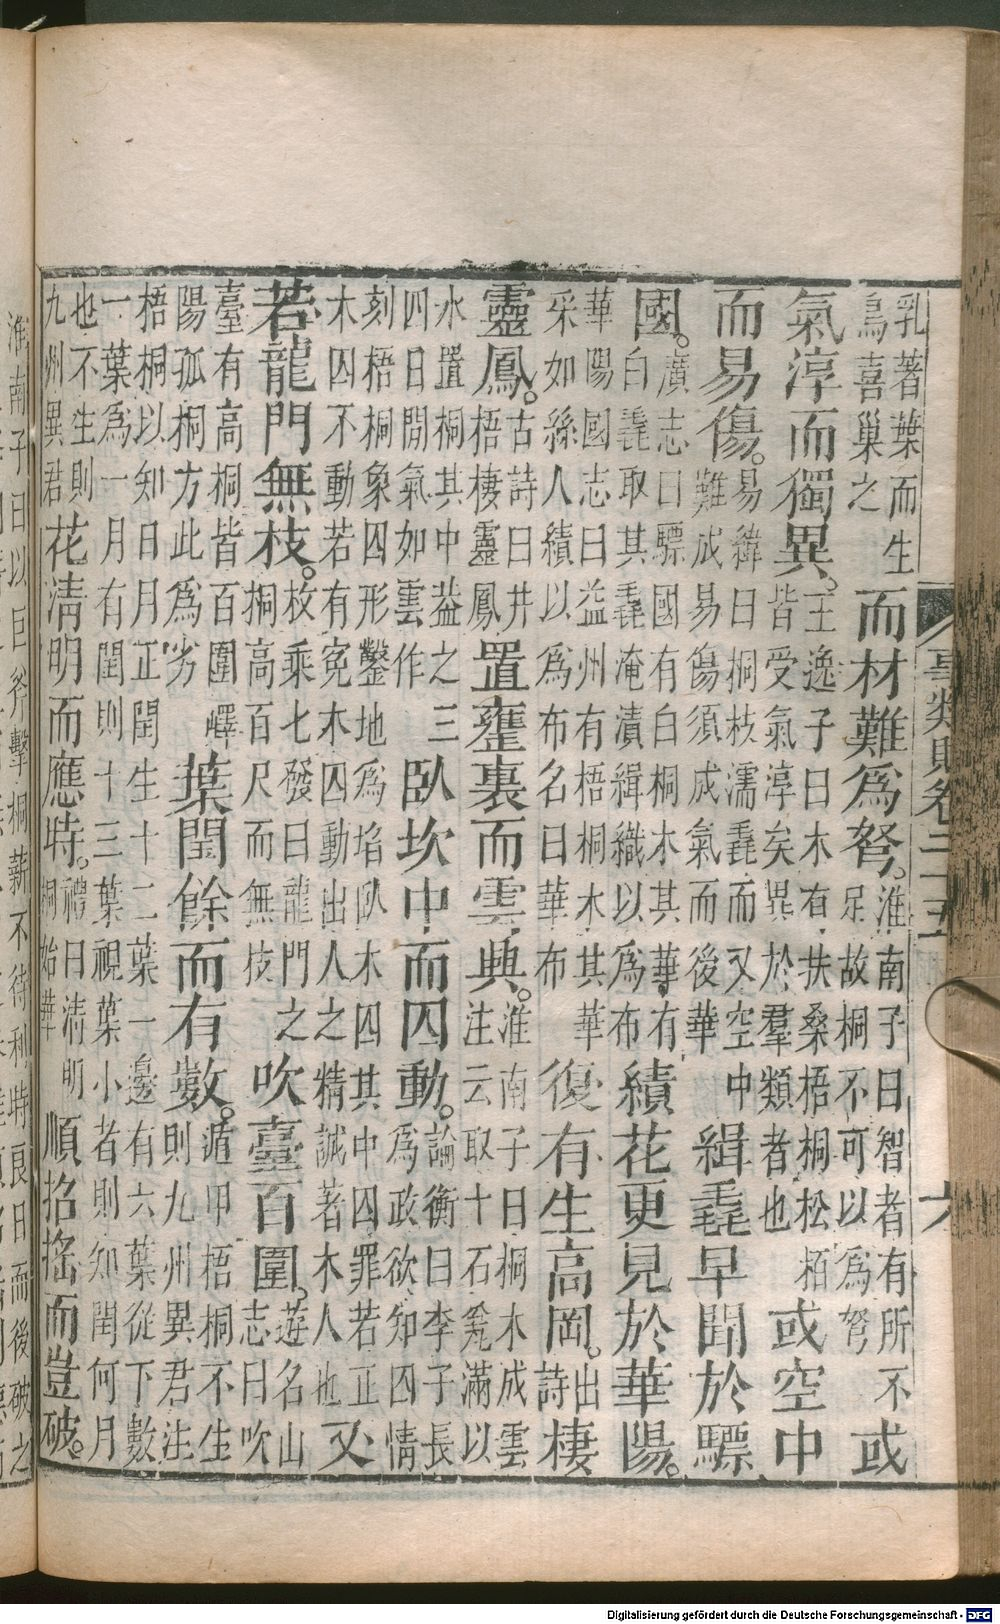 事類賦卷二十五
六
乳著葉而生
鳥喜巢之
而材難為弩。
淮南子曰智者有所不
足故桐不可以為弩
或
氣淳而獨異。
王逸子曰木有扶桑梧桐松栢
皆受氣淳矣異於羣類者也
或空中
而易傷。
易緯曰桐枝濡毳而又空中
難成易傷須成氣而後華
緝毳早聞於驃
國。
廣志曰驃國有白桐木其華有
白毳取其毳淹漬緝織以為布
績花更見於華陽。
華陽國志曰益州有梧桐木其華
采如絲人績以為布名曰華布
復有生高岡。
出
詩
棲
靈鳳。
古詩曰井
梧棲靈鳳
置壅裏而雲典。
淮南子曰桐木成雲
注云取十石瓮滿以
水置桐其中葢之三
四日間氣如雲作
臥坎中而囚動。
論衡曰李子長
為政欲知囚情
刻梧桐象囚形鑿地為埳臥木囚其中囚罪若正
木囚不動若有寃木囚動出人之精誠著木人也
又
若龍門無枝。
枚乘七發曰龍門之
桐高百尺而無枝
吹臺百圍。
遊名山
志曰吹
臺有高桐皆百圍嶧
陽孤桐方此為劣
葉閏餘而有數。
遁甲梧桐不生
則九州異君注
梧桐以知日月正閏生十二葉一邊有六葉從下數
一葉為一月有閏則十三葉視葉小者則知閏何月
也不生則
九州異君
花清明而應時。
禮曰清明
桐始華
順招搖而豈破。
淮南子曰以巨斧擊桐薪不待利時良日而後破之
Digitalisierung gefördert durch die Deutsche Forschungsgemeinschaft - DFG